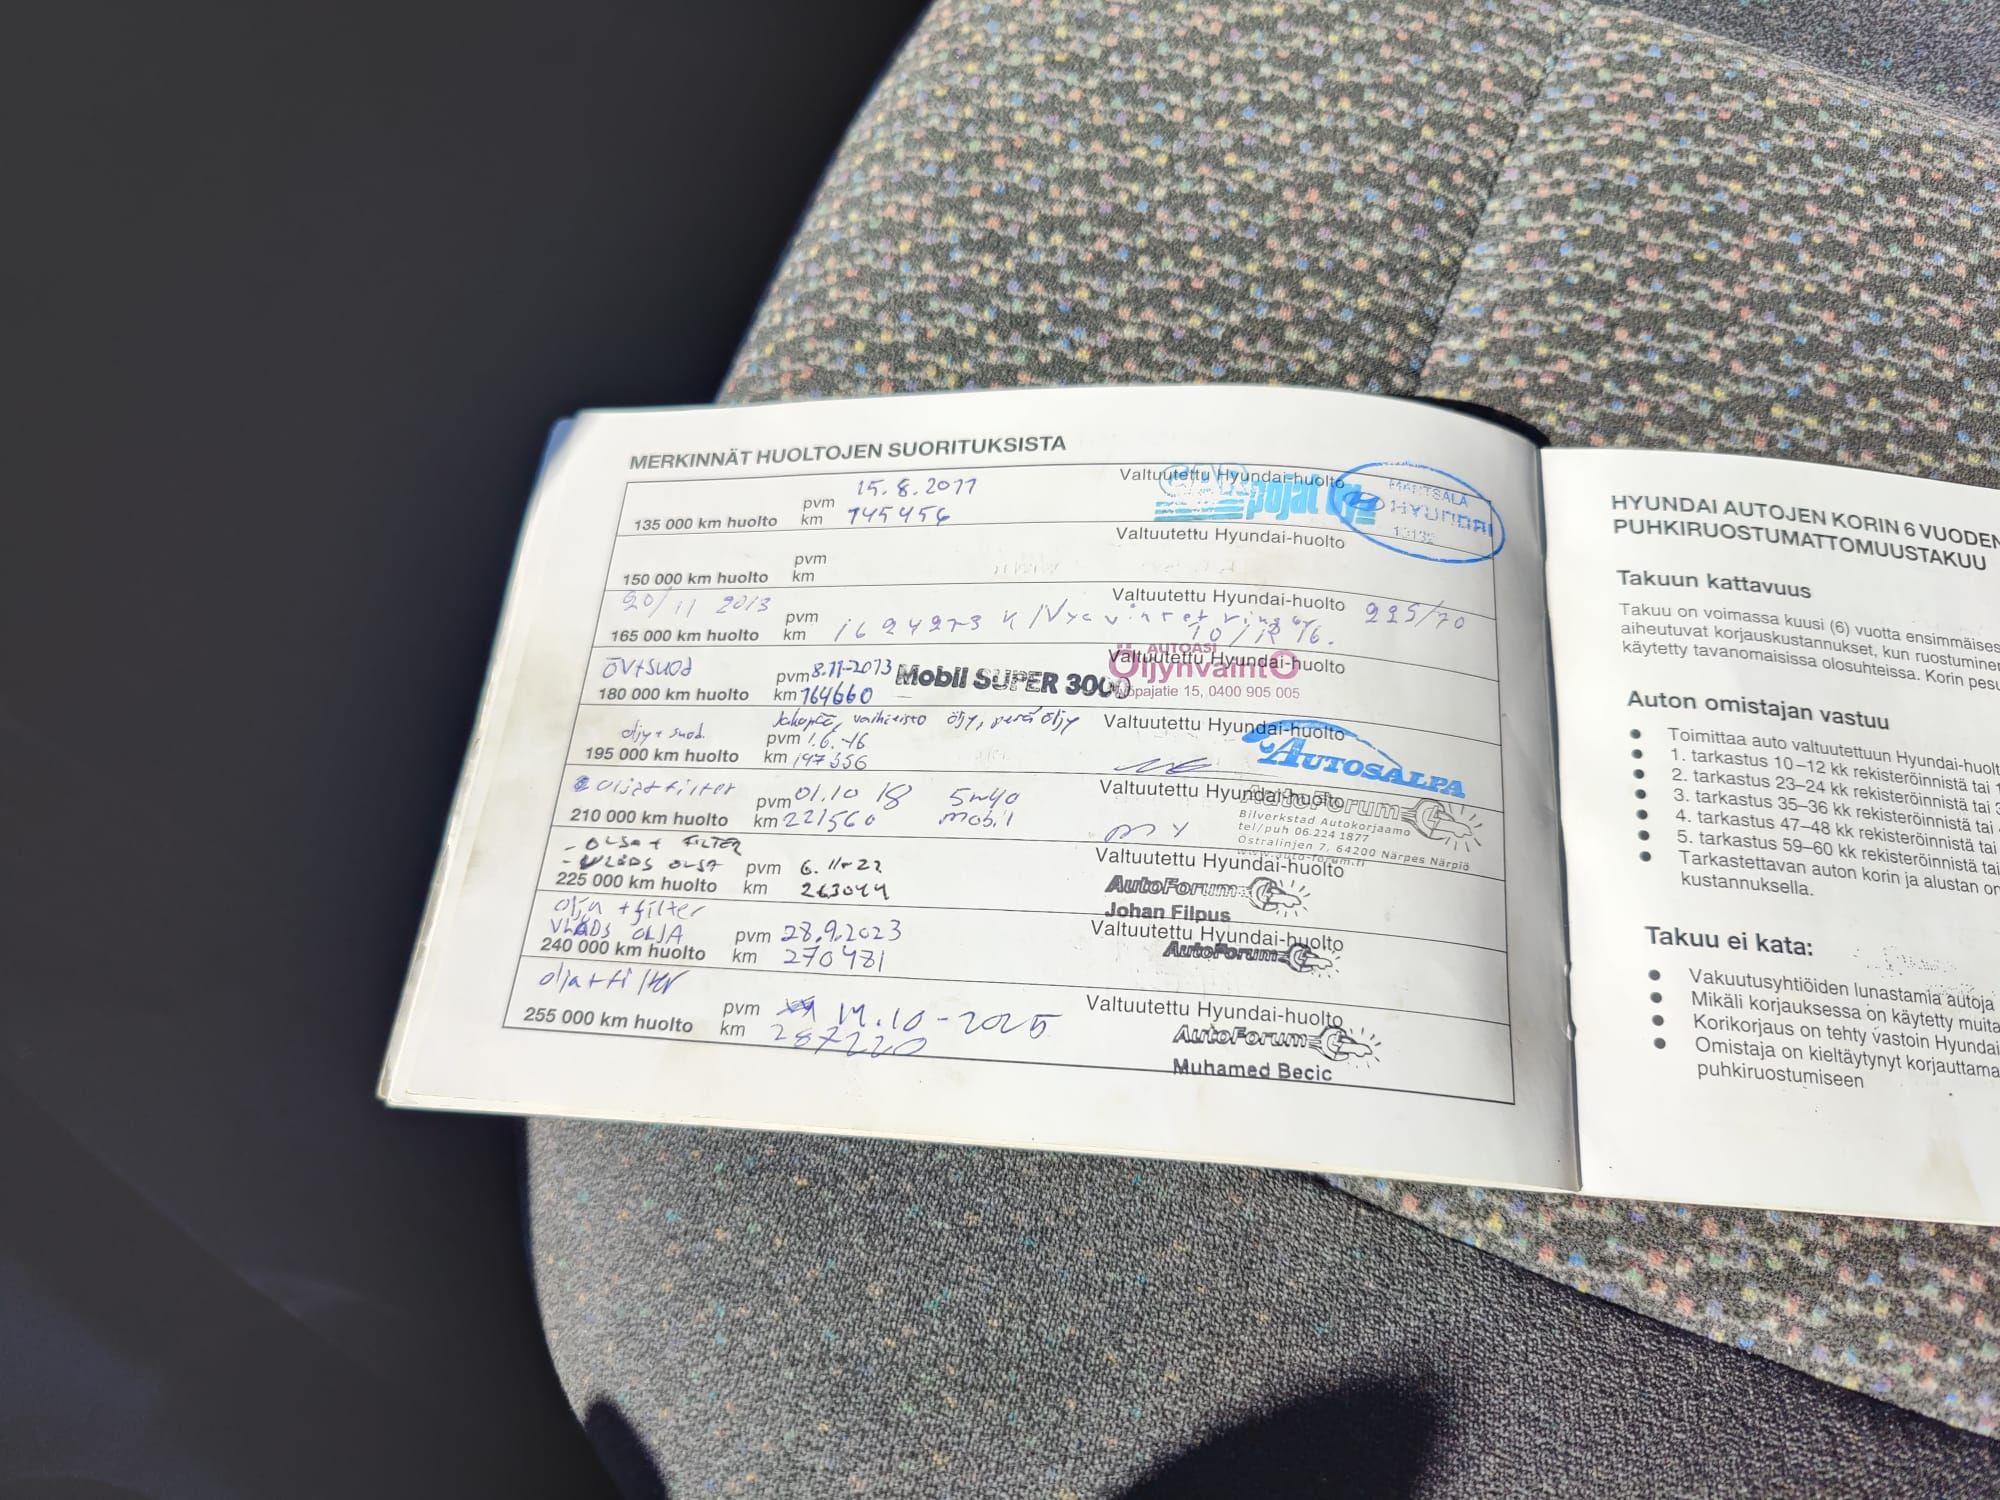 MERKINNÄT HUOLTOJEN SUORITUKSISTA
135 000 km huolto pvm 15.8.2011 Valtuutettu Hyundai-huolto
km 145456 pojat Oy MÄNTSÄLÄ HYUNDAI
150 000 km huolto pvm Valtuutettu Hyundai-huolto
km
20/11 2013 Valtuutettu Hyundai-huolto 225/70
165 000 km huolto pvm
km 10/12 16.
ÖV+SUOD pvm 8.11-2013 Mobil SUPER 3000 Valtuutettu Hyundai-huolto
180 000 km huolto km 164660 AUTOASI ÖljynvaihtO
opajatie 15, 0400 905 005
Jakopää, vaihteisto öljy, perä öljy Valtuutettu Hyundai-huolto
öljy + suod. pvm 1.6.-16
195 000 km huolto km 197356 AUTOSALPA
oljat filter pvm 01.10 18 5w40 Valtuutettu Hyundai-huolto
210 000 km huolto km 221560 mobil AutoForum
Bilverkstad Autokorjaamo
tel/puh 06-224 1877
Östralinjen 7, 64200 Närpes Närpiö
www.auto-forum.fi
- OLJA + FILTER
- VLÅDS OLJA pvm 6.11-22 Valtuutettu Hyundai-huolto
225 000 km huolto km 263044 AutoForum
Johan Filpus
olja + filter
VLÅDS OLJA pvm 28.9.2023 Valtuutettu Hyundai-huolto
240 000 km huolto km 270481 AutoForum
olja + filter
pvm 14.10-2025 Valtuutettu Hyundai-huolto
255 000 km huolto km 287220 AutoForum
Muhamed Becic
HYUNDAI AUTOJEN KORIN 6 VUODEN
PUHKIRUOSTUMATTOMUUSTAKUU
Takuun kattavuus
Takuu on voimassa kuusi (6) vuotta ensimmäises
aiheutuvat korjauskustannukset, kun ruostuminen
käytetty tavanomaisissa olosuhteissa. Korin pesu
Auton omistajan vastuu
• Toimittaa auto valtuutettuun Hyundai-huolt
• 1. tarkastus 10–12 kk rekisteröinnistä tai 1
• 2. tarkastus 23–24 kk rekisteröinnistä tai 3
• 3. tarkastus 35–36 kk rekisteröinnistä tai
• 4. tarkastus 47–48 kk rekisteröinnistä tai
• 5. tarkastus 59–60 kk rekisteröinnistä tai
• Tarkastettavan auton korin ja alustan on
kustannuksella.
Takuu ei kata:
• Vakuutusyhtiöiden lunastamia autoja
• Mikäli korjauksessa on käytetty muita
• Korikorjaus on tehty vastoin Hyundai
• Omistaja on kieltäytynyt korjauttama
puhkiruostumiseen